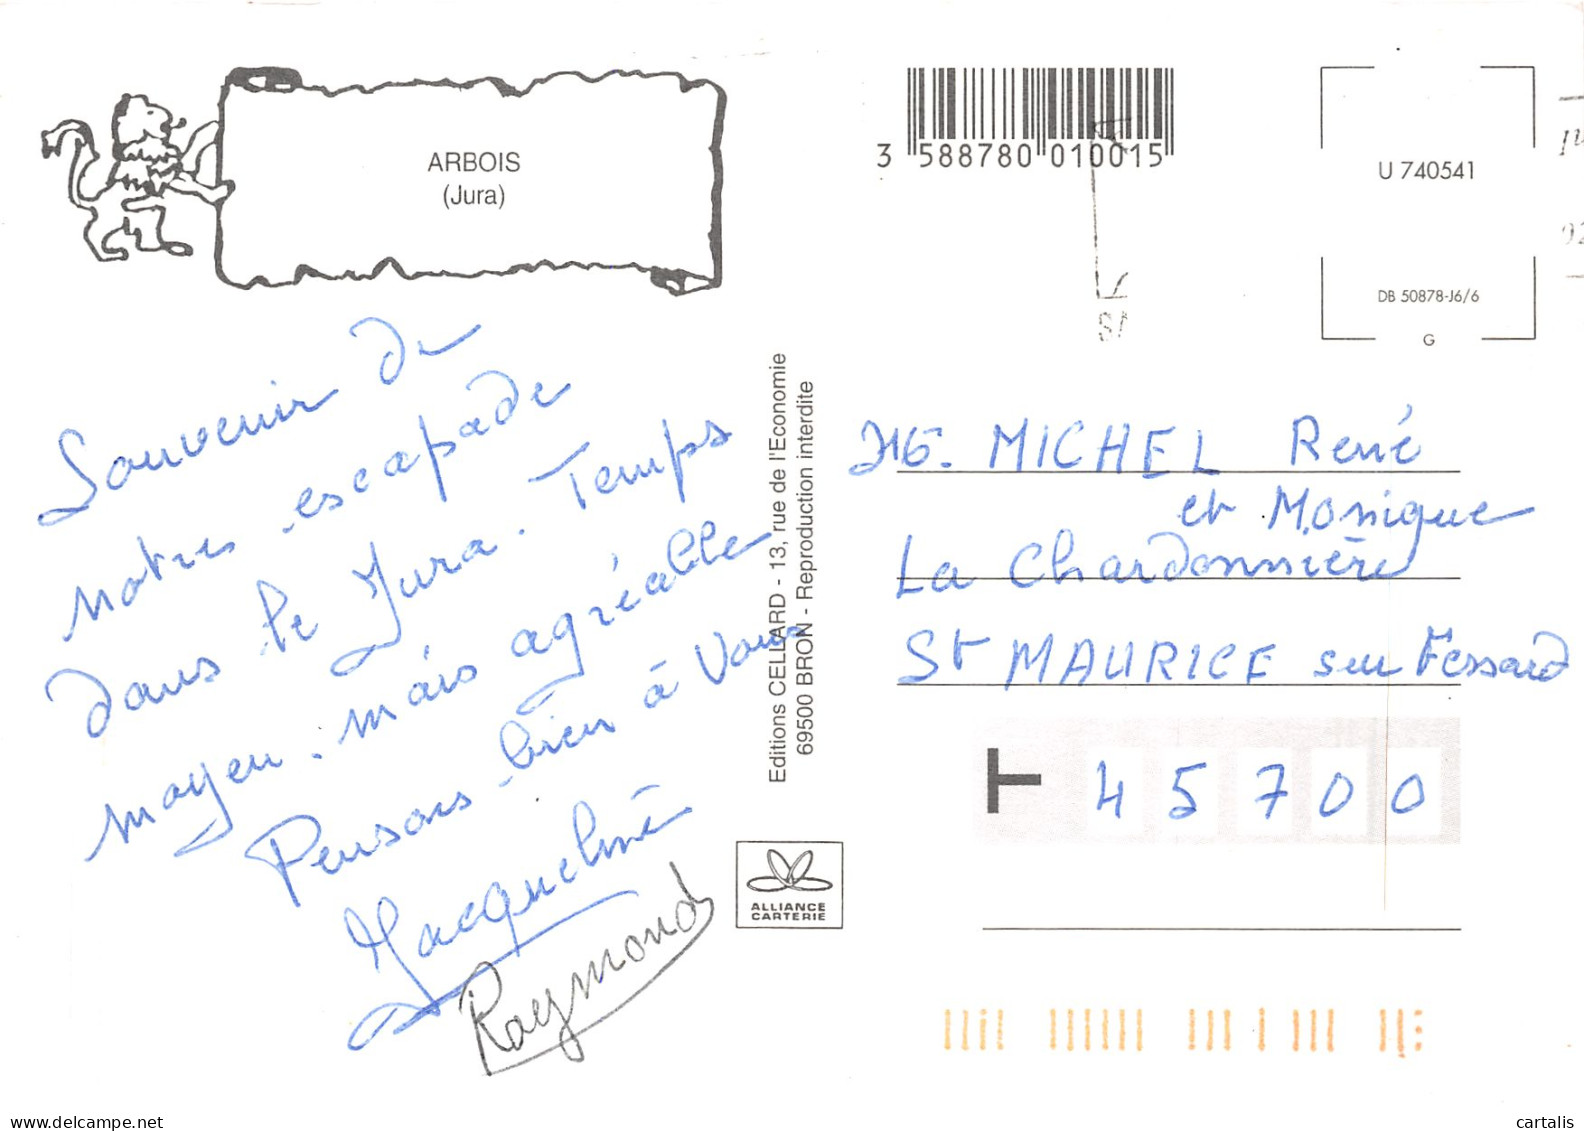 ARBOIS
(Jura)
3 588780 010015
U 740541
DB 50878-J6/6
G
Souvenir de
notre escapade
dans le Jura. Temps
moyen. mais agréable
Pensons bien à Vous
Jacqueline
Raymond
Editions CELLARD - 13, rue de l'Economie
69500 BRON - Reproduction interdite
MICHEL René
et Monique
La Chardonnière
St MAURICE sur Fessard
45700
ALLIANCE
CARTERIE
delcampe.net
cartalis